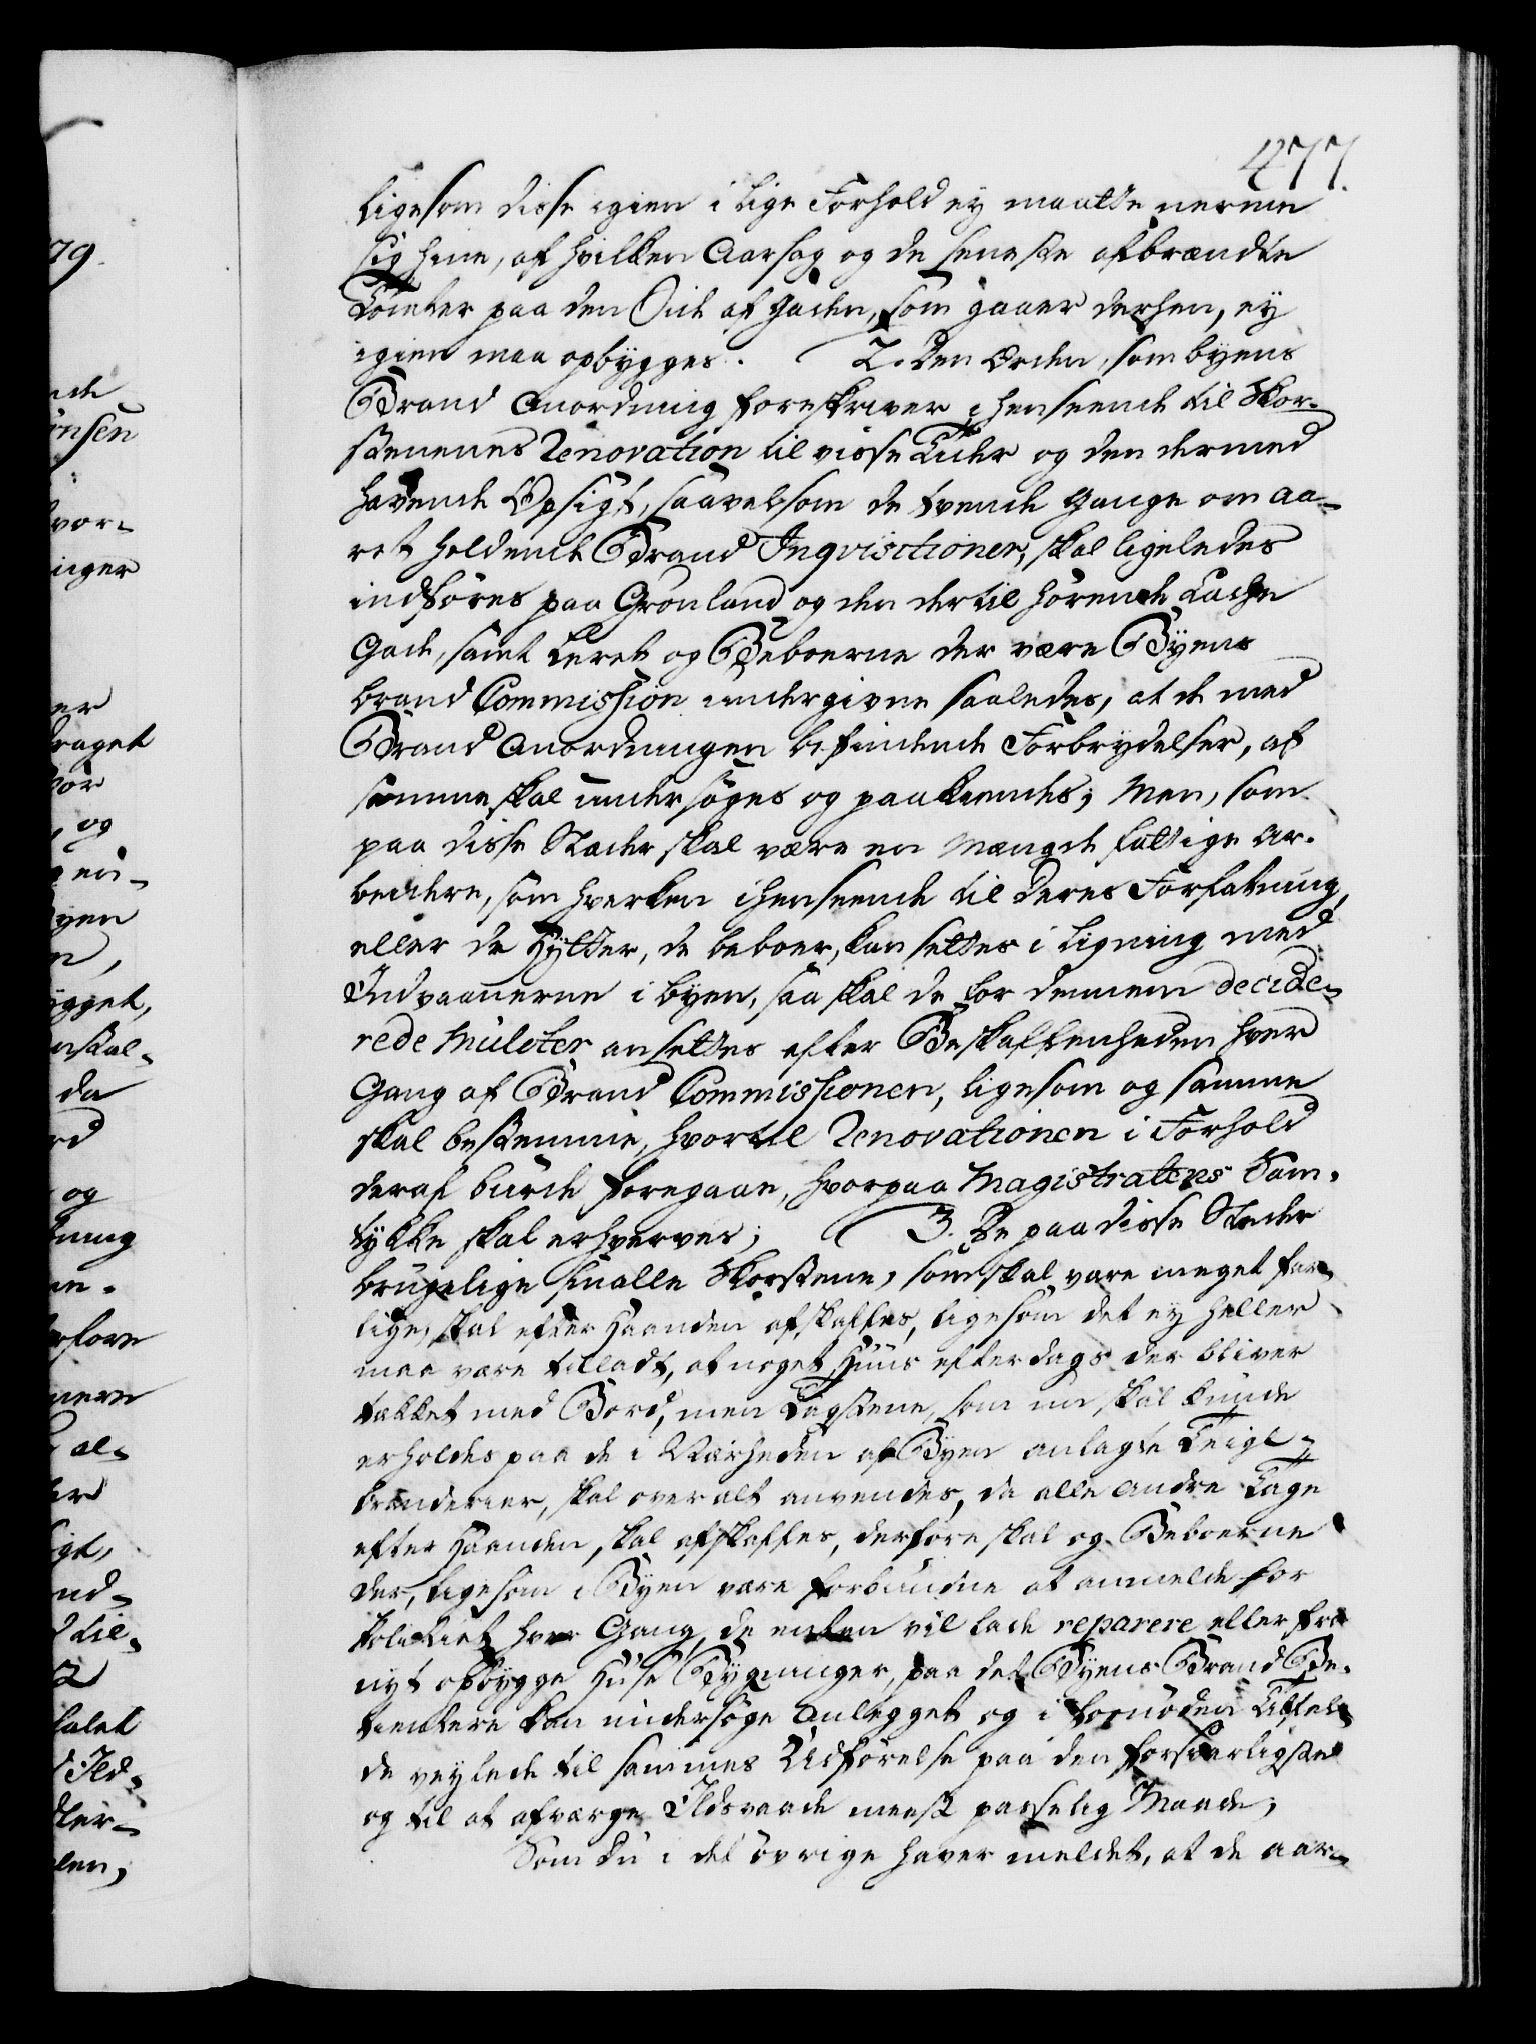 477.
ligesom disse igien i lige Forhold ey maatte nerme
sig hine, af hvilken Aarsag og de seneste afbrændte
Tomter paa den Side af Gaden, som gaaer derhen, ey
igien maa opbygges. 2. Den Orden, som byens
Brand Anordning foreskriver i henseende til Skor-
stenenes Renovation til visse Tider og den dermed
havende Opsigt, saavelsom de tvende Gange om Aa-
ret holdende Brand Inqvisitioner, skal ligeledes
indføres paa Grønland og den dertil hørende
Gade, samt Leret og Beboerne der være Byens
brand Commission undergivne saaledes, at de mod
Brand Anordningen befindende Forbrydelser, af
samme skal undersøges og paakiendes; Men, som
paa disse Stæder skal være en Mængde fattige Ar-
beidere, som hverken i henseende til deres Forfatning,
eller de Hytter, de beboer, kan settes i Ligning med
Indvaanerne i byen, saa skal de for dennem decide-
rede Mulcter ansettes efter Beskaffenheden hver
Gang af Brand Commissionen, ligesom og samme
skal bestemme, hvortil Renovationen i Forhold
deraf burde foregaae, hvorpaa Magistratens Sam-
tykke skal erhverves; 3. De paa disse Stæder
brugelige smalle Skorstene, som skal være meget far-
lige, skal efter Haanden afskaffes, ligesom det ey heller
maa være tilladt, at noget Huus efterdags der bliver
tækket med Bord, men Tagstene, som nu skal kunde
erholdes paa de i Nærheden af Byen anlagte Teigl-
brænderier, skal overalt anvendes, da alle andre Tage
efter Haanden skal afskaffes, derfore skal og Beboerne
der, ligesom i Byen være forbundne at anmelde for
Politiet hver Gang, de enten vil lade reparere eller fra
nyt opbygge Huse Bygninger, paa det Byens Brand Be-
tientere kan undersøge Anlegget og i fornøden Tilfæl-
de veylede til sammes Udførelse paa den forsvarligste
og til at afværge Ildsvaade meest passelig Maade;
Som Du i det øvrige haver meldet, at de aar-